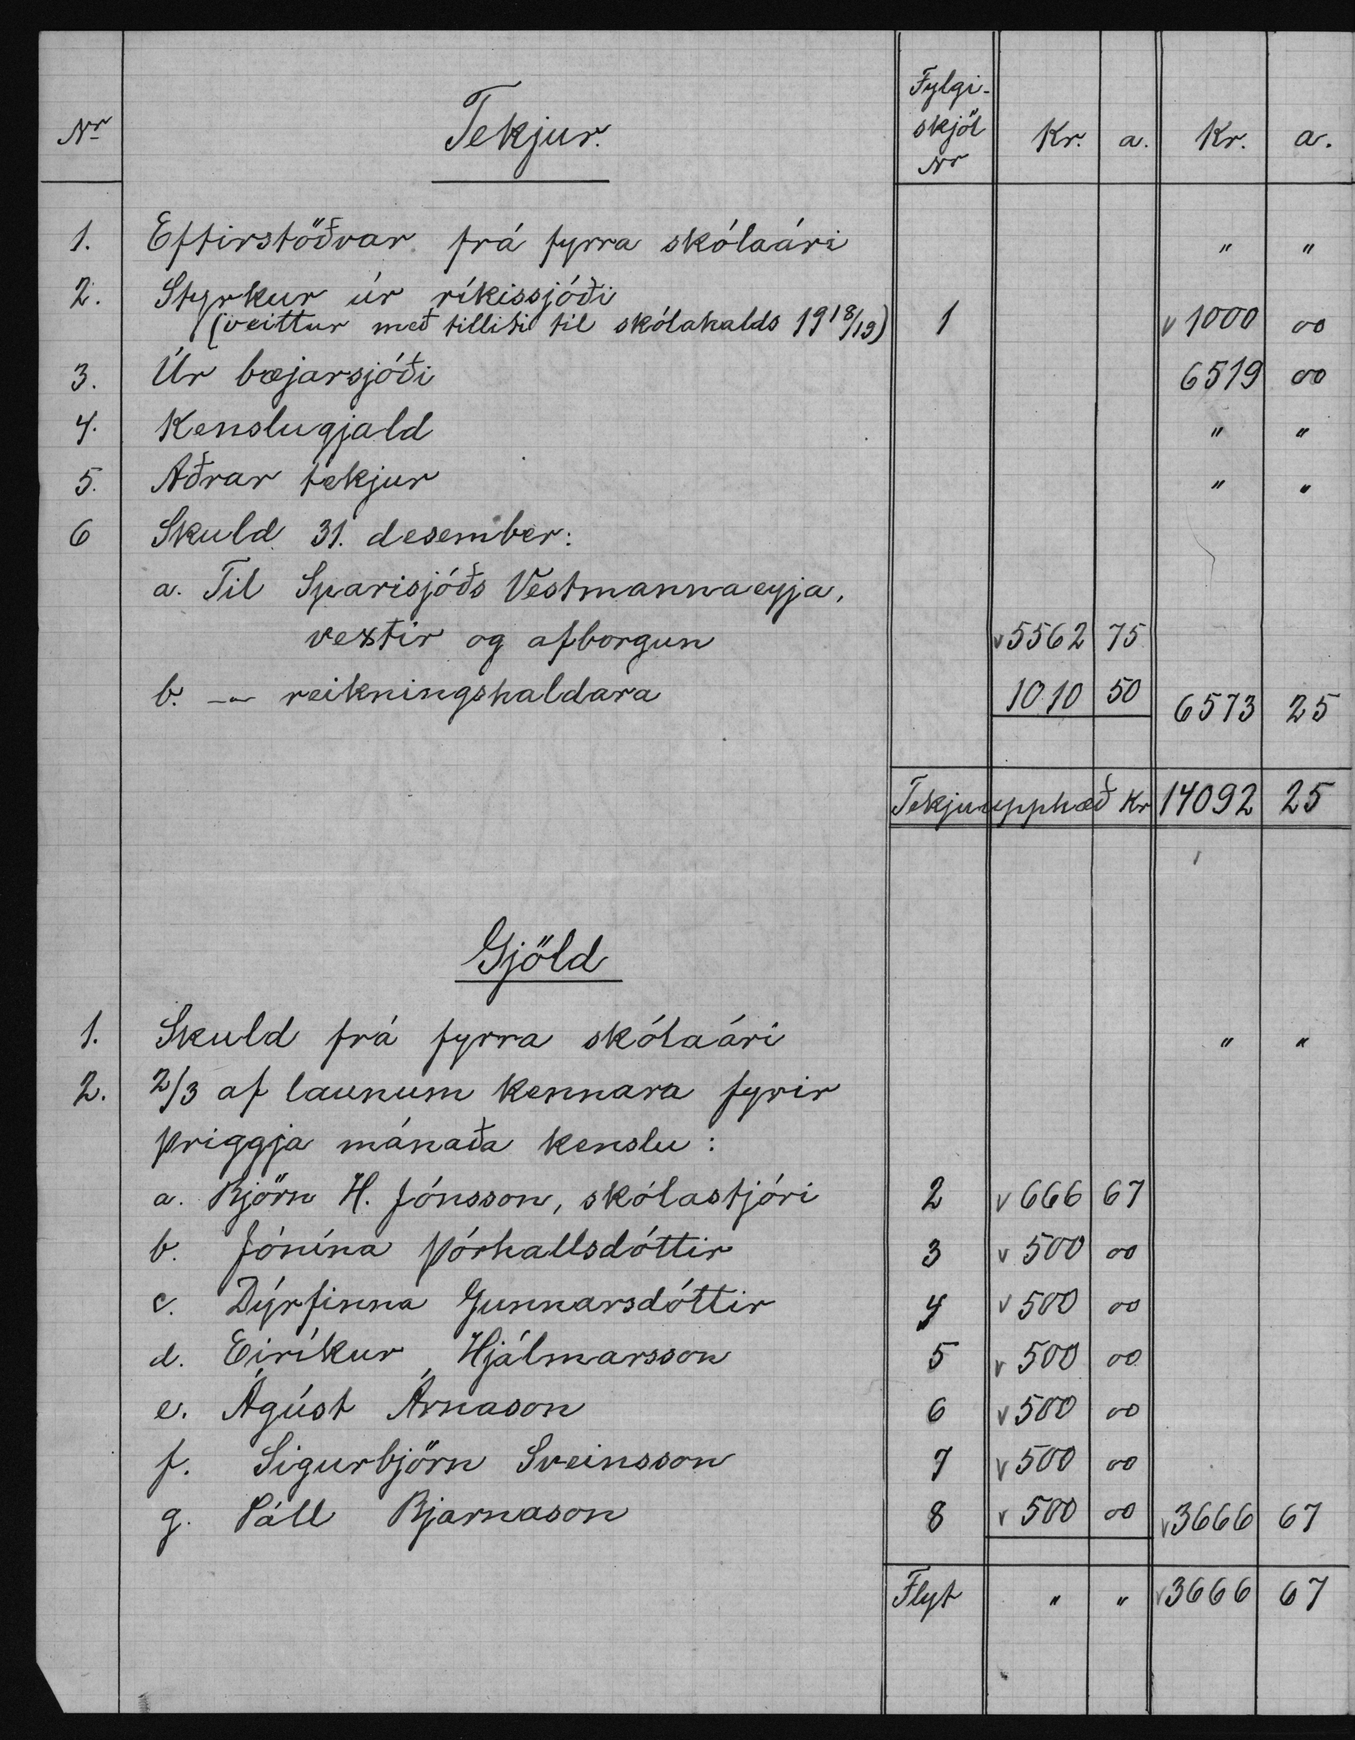 Nr Tekjur. Fylgi-skjöl Nr Kr. a. Kr. a.
1. Eftirstöðvar frá fyrra skólaári " "
2. Styrkur úr ríkissjóði
(veittur með tilliti til skólahalds 1918/19) 1 1000 00
3. Úr bæjarsjóði 6519 00
4. Kenslugjald " "
5. Aðrar tekjur " "
6 Skuld 31. desember:
a. Til Sparisjóðs Vestmannaeyja,
vextir og afborgun 5562 75
b. -"- reikningshaldara 1010 50 6573 25
Tekjuupphæð Kr 14092 25
Gjöld
1. Skuld frá fyrra skólaári " "
2. 2/3 af launum kennara fyrir
þriggja mánaða kenslu:
a. Björn H. Jónsson, skólastjóri 2 666 67
b. Jónína Þórhallsdóttir 3 500 00
c. Dýrfinna Gunnarsdóttir 4 500 00
d. Eiríkur Hjálmarsson 5 500 00
e. Ágúst Árnason 6 500 00
f. Sigurbjörn Sveinsson 7 500 00
g. Páll Bjarnason 8 500 00 3666 67
Flyt " " 3666 67